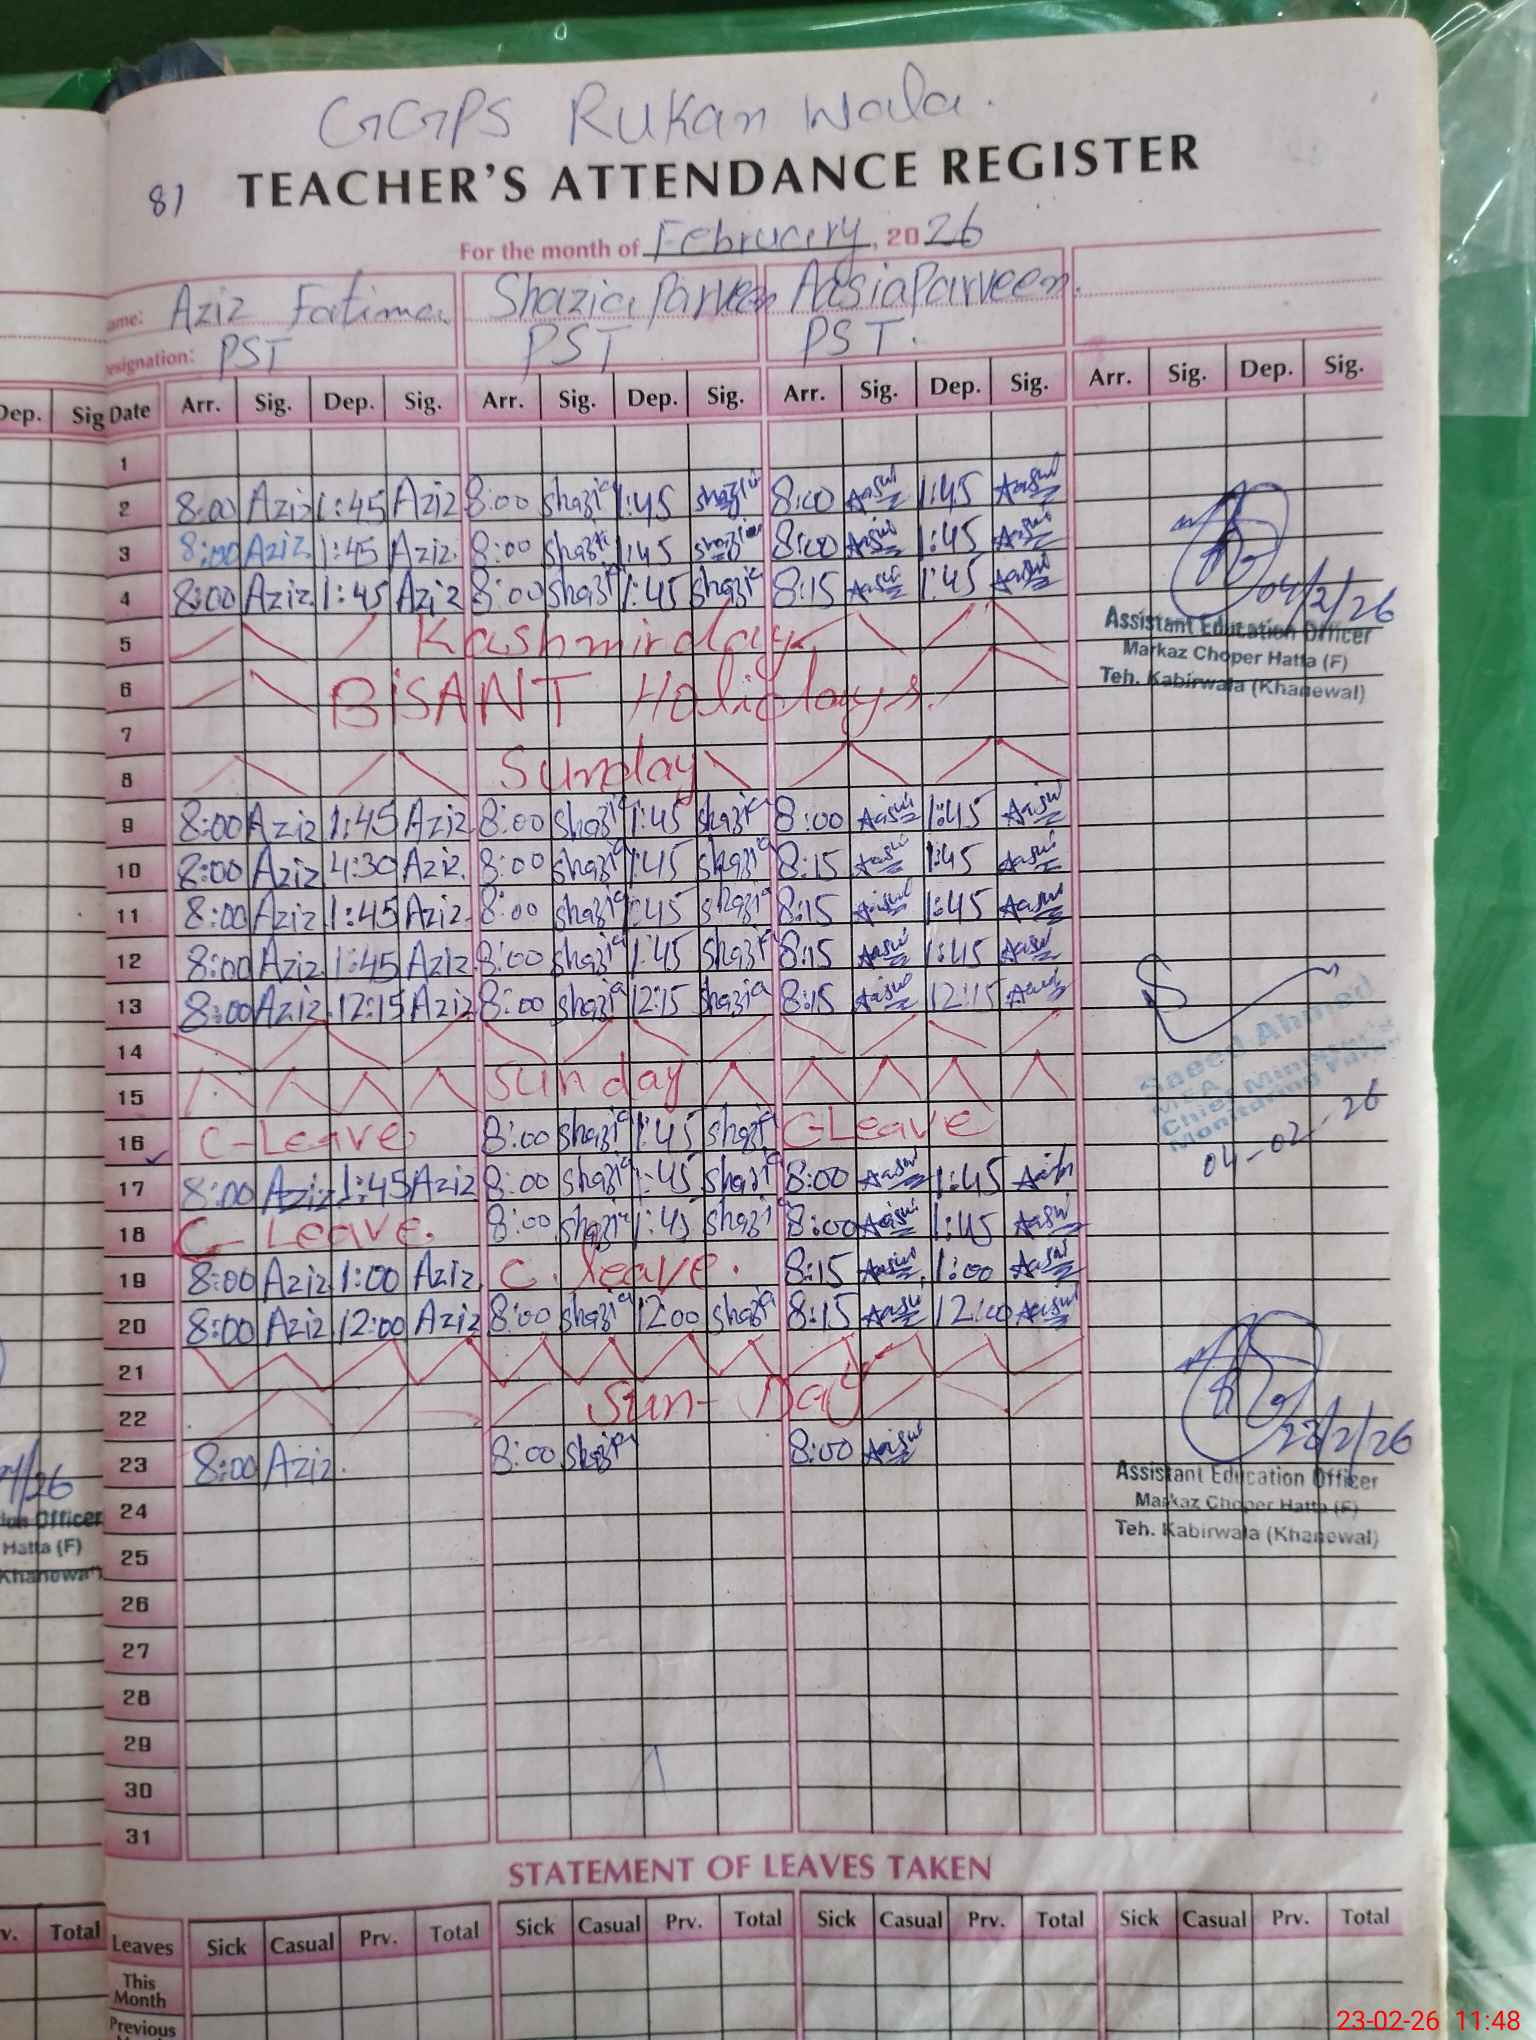 GGPS Rukan Wala.
81 TEACHER'S ATTENDANCE REGISTER
For the month of February, 2026
ame: Aziz Fatima. Shazia Parveen Aasia Parveen.
esignation: PST PST PST.
Dep. Sig Date Arr. Sig. Dep. Sig. Arr. Sig. Dep. Sig. Arr. Sig. Dep. Sig. Arr. Sig. Dep. Sig.
1
2 8:00 Aziz 1:45 Aziz 8:00 Shazia 1:45 Shazia 8:00 Aasia 1:45 Aasia
3 8:00 Aziz 1:45 Aziz. 8:00 Shazia 1:45 Shazia 8:00 Aasia 1:45 Aasia
4 8:00 Aziz 1:45 Aziz 8:00 Shazia 1:45 Shazia 8:15 Aasia 1:45 Aasia 04/2/26
Assistant Education Officer
Markaz Choper Hatta (F)
Teh. Kabirwala (Khanewal)
5 Kashmir day
6 BiSANT Holidays.
7
8 Sunday
9 8:00 Aziz 1:45 Aziz 8:00 Shazia 1:45 Shazia 8:00 Aasia 1:45 Aasia
10 8:00 Aziz 4:30 Aziz. 8:00 Shazia 1:45 Shazia 8:15 Aasia 1:45 Aasia
11 8:00 Aziz 1:45 Aziz. 8:00 Shazia 1:45 Shazia 8:15 Aasia 1:45 Aasia
12 8:00 Aziz 1:45 Aziz 8:00 Shazia 1:45 Shazia 8:15 Aasia 1:45 Aasia
13 8:00 Aziz 12:15 Aziz 8:00 Shazia 12:15 Shazia 8:15 Aasia 12:15 Aasia
14
15 Sunday
Saeed Ahmed
MEA
Chief Minister's
Monitoring Force
04-02-26
16 C-Leave. 8:00 Shazia 1:45 Shazia C-Leave
17 8:00 Aziz 1:45 Aziz 8:00 Shazia 1:45 Shazia 8:00 Aasia 1:45 Aasia
18 C-Leave. 8:00 Shazia 1:45 Shazia 8:00 Aasia 1:45 Aasia
19 8:00 Aziz 1:00 Aziz C. Leave. 8:15 Aasia 1:00 Aasia
20 8:00 Aziz 12:00 Aziz 8:00 Shazia 12:00 Shazia 8:15 Aasia 12:00 Aasia
21
22 Sun-Day
23 8:00 Aziz. 8:00 Shazia 8:00 Aasia 23/2/26
Assistant Education Officer
Markaz Choper Hatta (F)
Teh. Kabirwala (Khanewal)
/26
Officer
Hatta (F)
24
25
26
27
28
29
30
31
STATEMENT OF LEAVES TAKEN
v. Total Leaves Sick Casual Prv. Total Sick Casual Prv. Total Sick Casual Prv. Total Sick Casual Prv. Total
This Month
Previous
23-02-26 11:48